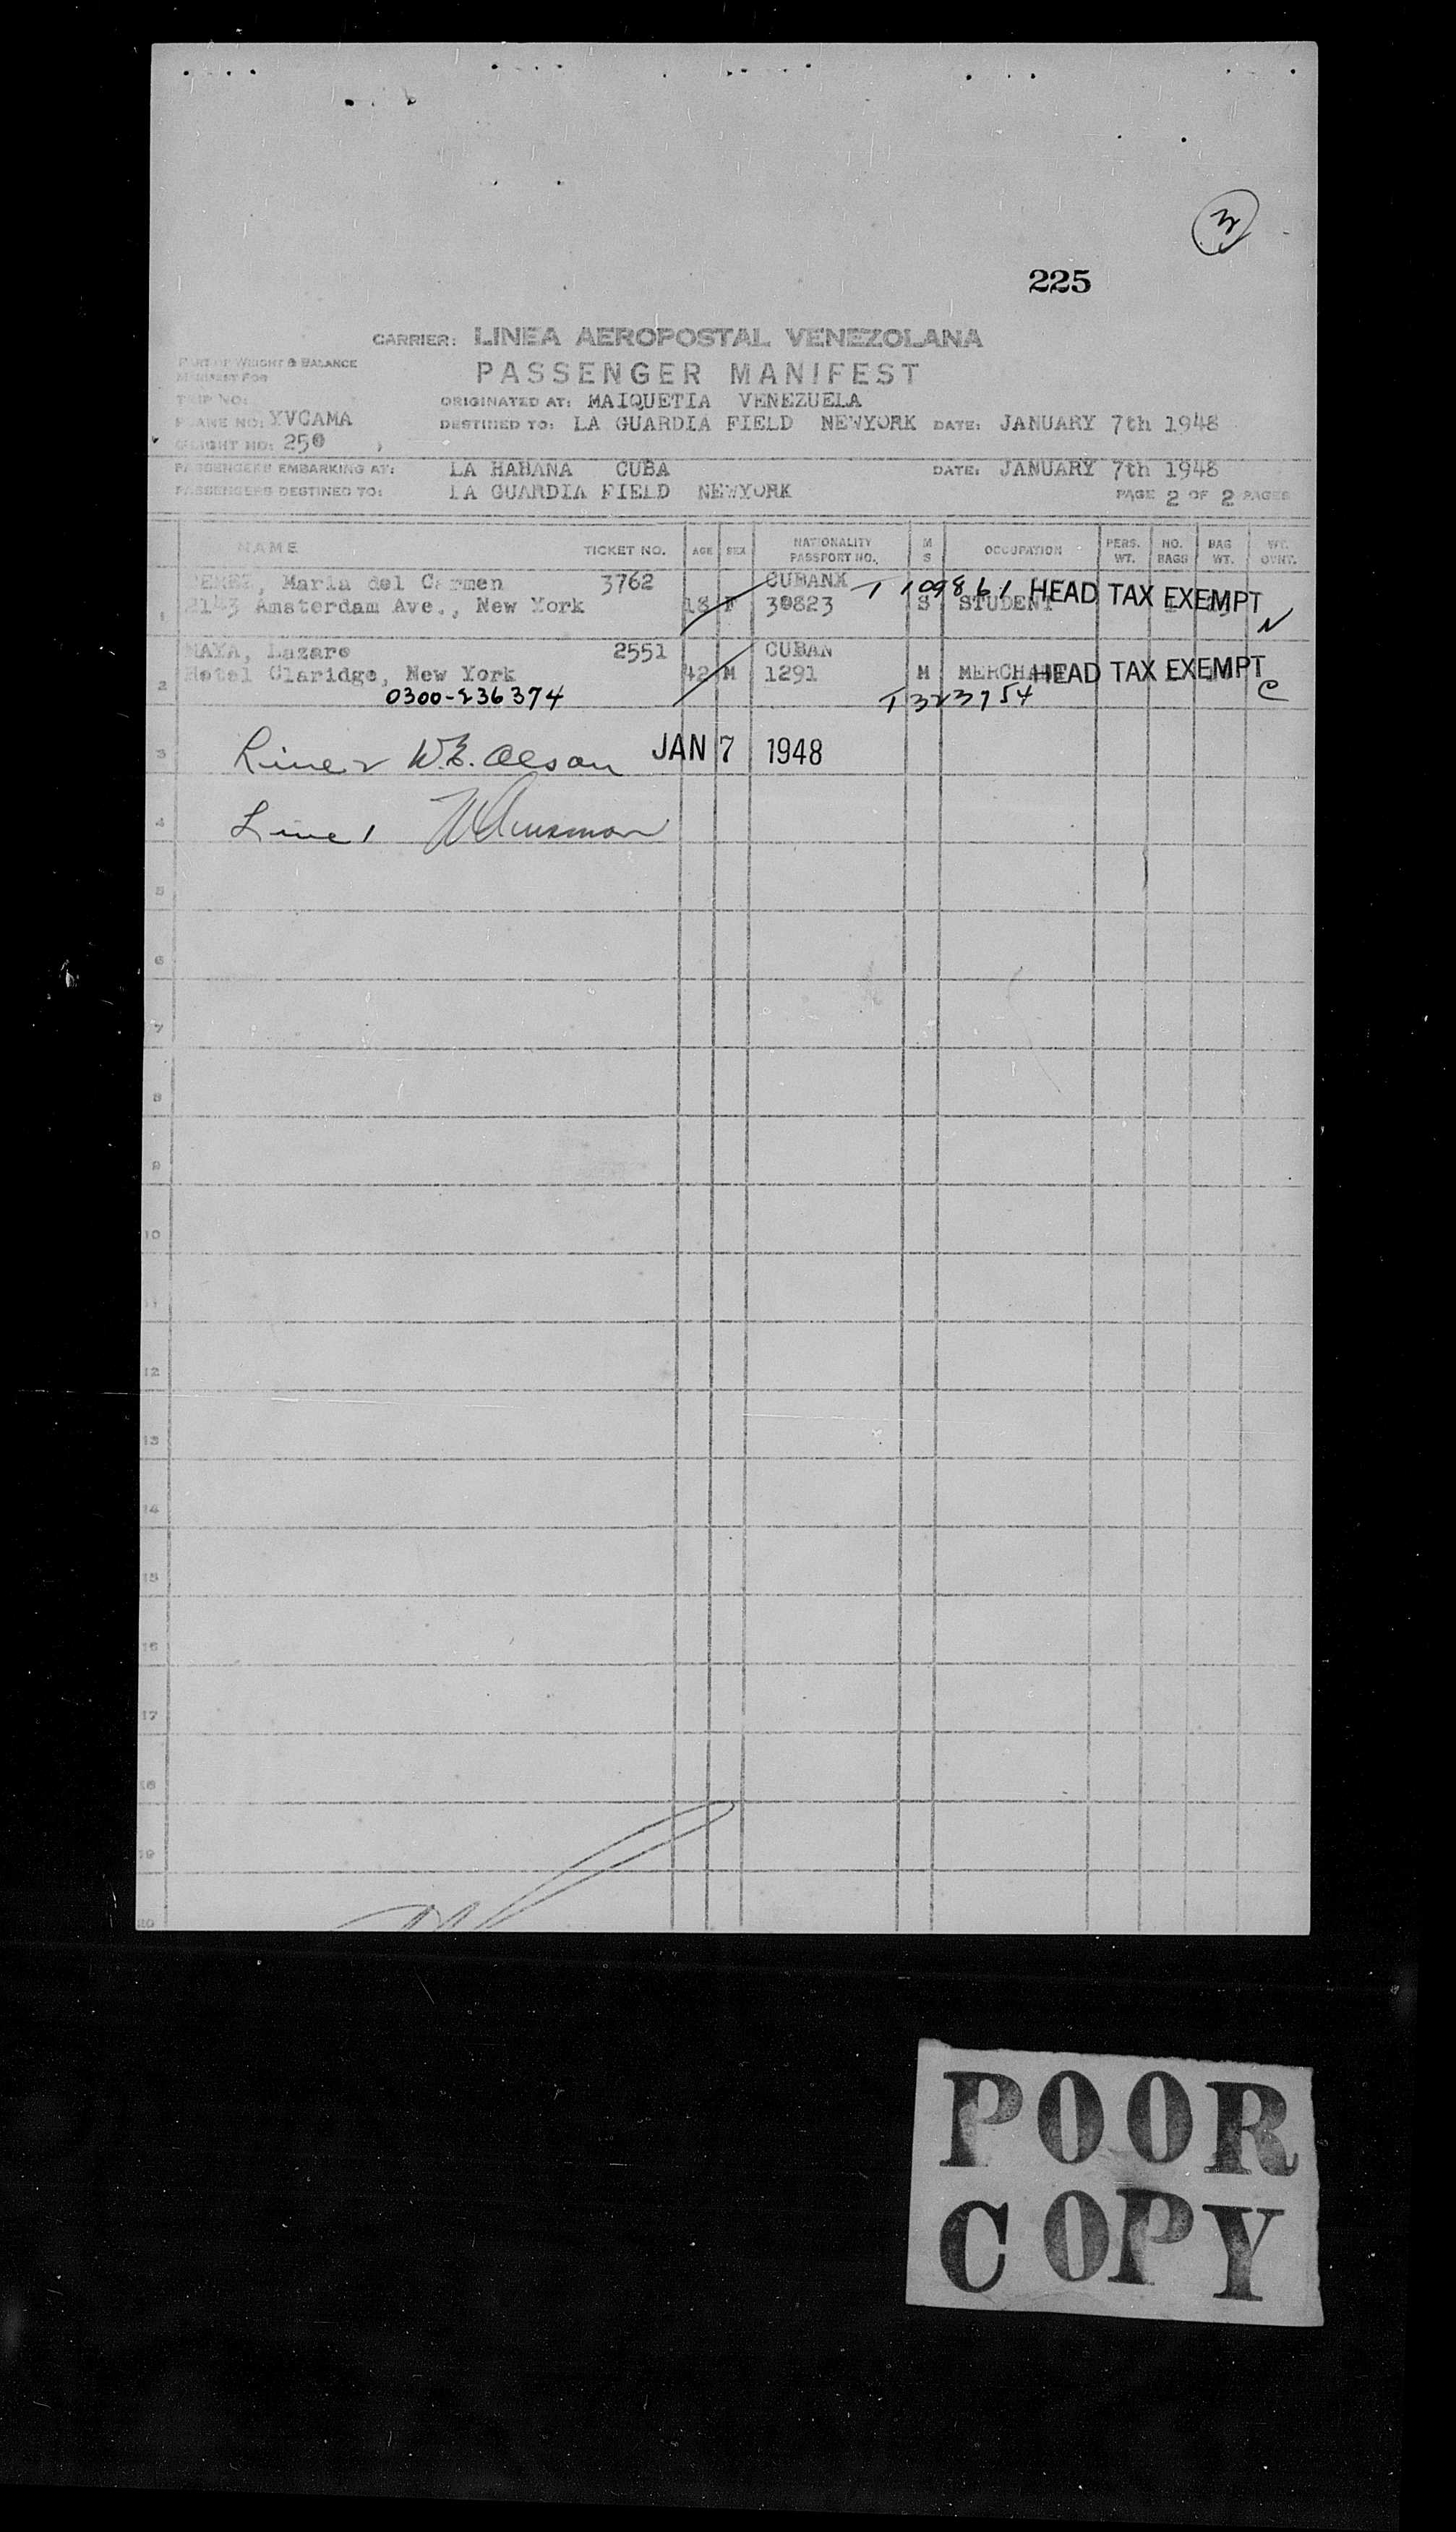 3
225
CARRIER: LINEA AEROPOSTAL VENEZOLANA
PART OF WEIGHT & BALANCE
MANIFEST FOR
PASSENGER MANIFEST
TRIP NO:
ORIGINATED AT: MAIQUETIA VENEZUELA
PLANE NO: YVCAMA
DESTINED TO: LA GUARDIA FIELD NEWYORK DATE: JANUARY 7th 1948
FLIGHT NO: 250
PASSENGERS EMBARKING AT: LA HABANA CUBA DATE: JANUARY 7th 1948
PASSENGERS DESTINED TO: LA GUARDIA FIELD NEWYORK PAGE 2 OF 2 PAGES
NAME TICKET NO. AGE SEX NATIONALITY PASSPORT NO. M S OCCUPATION PERS. WT. NO. BAGS BAG WT. WT. OVHT.
Maria del Carmen 3762 CUBANX T 109861 HEAD TAX EXEMPT
1 2143 Amsterdam Ave., New York 18 F 30823 S STUDENT N
MAYA, Lazaro 2551 CUBAN
2 Hotel Claridge, New York 42 M 1291 M MERCHANT HEAD TAX EXEMPT
0300-236374 T 323754 C
3 Line 2 W.E. Olson JAN 7 1948
4 Line 1
5
6
7
8
9
10
11
12
13
14
15
16
17
18
19
20
POOR
COPY